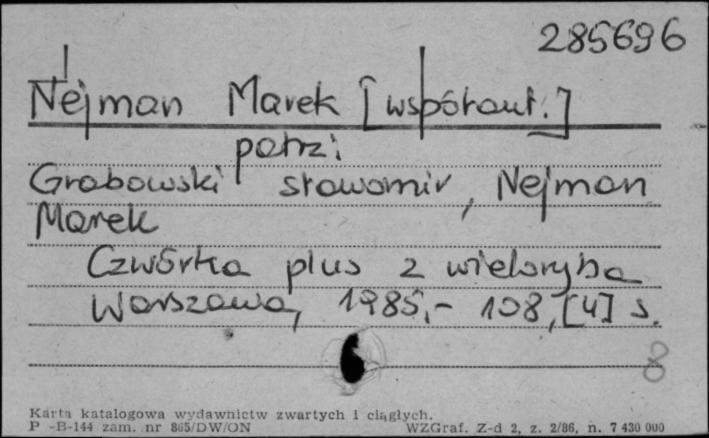 285696
Nejman Marek [współaut.]
patrz:
Grabowski Sławomir, Nejman
Marek
Czwórka plus z wieloryba
Warszawa, 1985,- 108,[4] s.
8
Karta katalogowa wydawnictw zwartych i ciągłych.
P -B-144 zam. nr 865/DW/ON WZGraf. Z-d 2, z. 2/86, n. 7 430 000